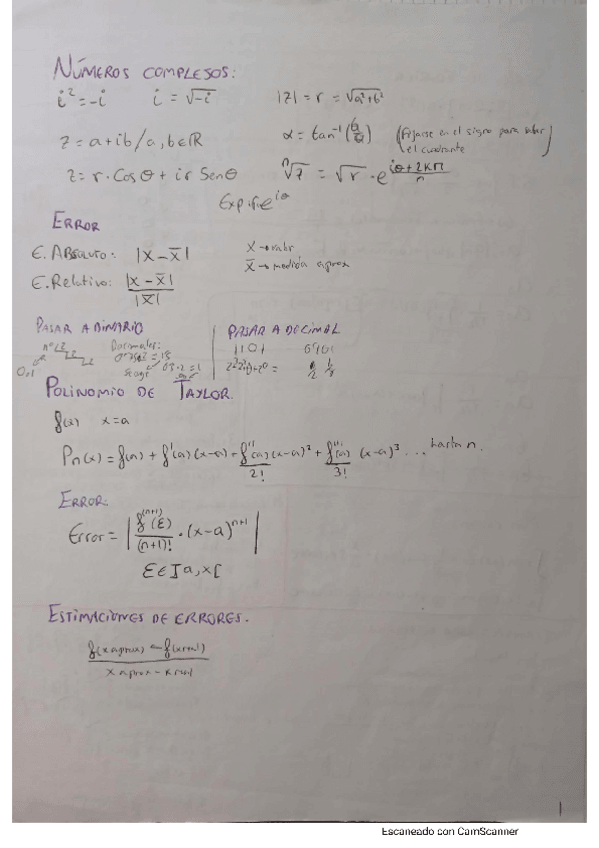 NÚMEROS COMPLEJOS:
i² = -i   i = √-i   |z| = r = √a²+b²
z = a+ib / a, b ∈ ℝ   α = tan⁻¹(b/a)   (Fijarse en el signo para saber el cuadrante)
z = r · Cos θ + i r Sen θ   ⁿ√z = √r · e^(iθ+2Kπ/n)
e^iθ
ERROR
E. Absoluto: |x - x̄|   x → valor
E. Relativo: |x - x̄| / |x̄|   x̄ → medida aprox
PASAR A BINARIO   PASAR A DECIMAL
Decimales:   1101   0'101
POLINOMIO DE TAYLOR.
f(x)   x=a
Pn(x) = f(a) + f'(a) (x-a) + f''(a)/2! (x-a)² + f'''(a)/3! (x-a)³ ... hasta n.
ERROR.
Error = | f^(n+1)(ε)/(n+1)! · (x-a)^n+1 |
ε ∈ ]a, x[
ESTIMACIONES DE ERRORES.
f(x aprox) - f(x real)
x aprox - x real
1
Escaneado con CamScanner